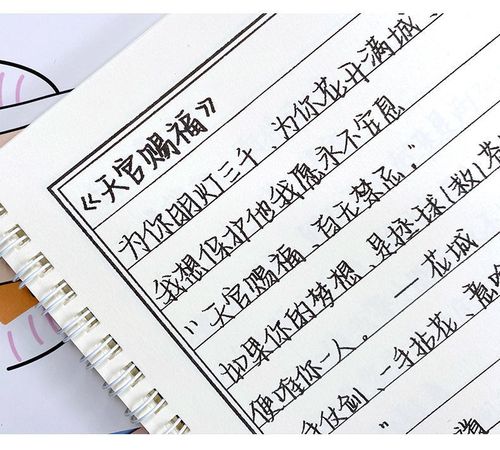 《天官赐福》
为你明灯三千、为你花开满城、
我想保护他我愿永不安息
"天官赐福、百无禁忌。"
如果你的梦想、是拯球(救)苍
便唯你一人。 — 花城
手仗剑、一手拈花、